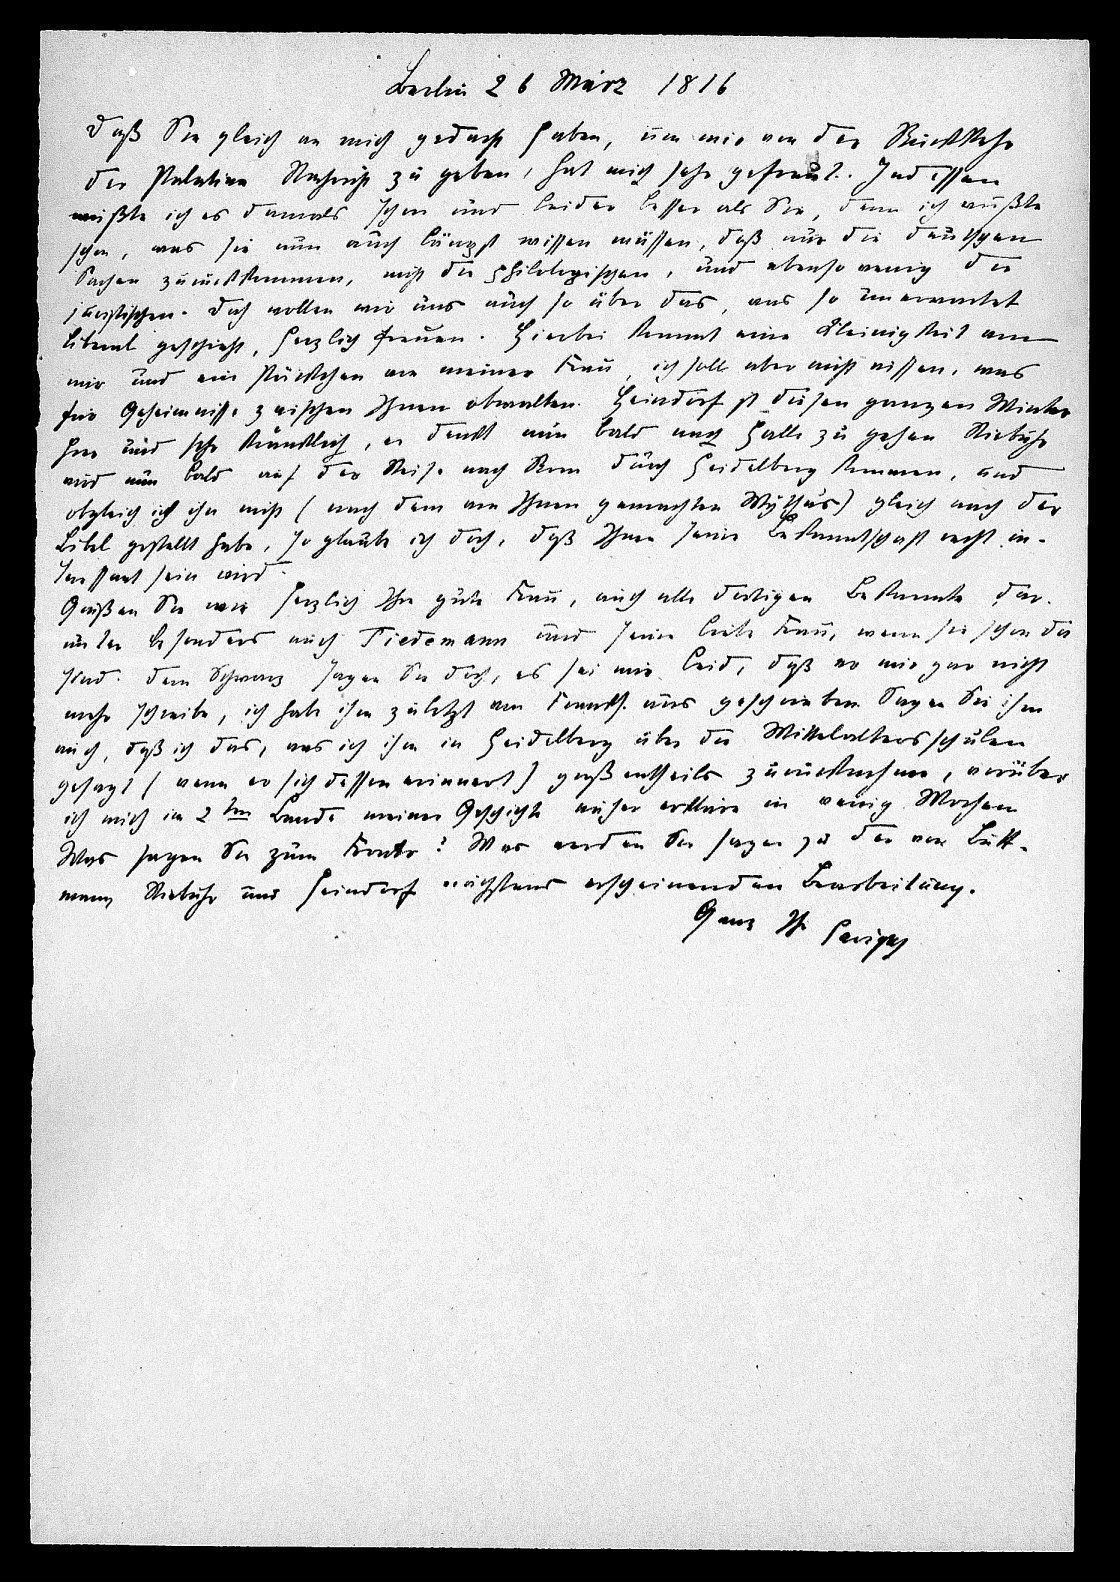 Berlin 26 März 1816
Daß Sie gleich an mich gedacht haben, um mir von der Rückkehr
der Palatina Nachricht zu geben, hat mich sehr gefreut. Indessen
wußte ich es damals schon und leider besser als Sie, denn ich wußte
schon, was Sie nun auch längst wissen müssen, daß nur die deutschen
Sachen zurückkommen, nicht die philologischen, und ebenso wenig die
juristischen. Doch wollen wir uns auch so über das, was so unerwartet
liberal geschieht, herzlich freuen. Hierbei kommt eine Kleinigkeit von
mir und ein Stückchen von meiner Frau, ich soll aber nicht wissen, was
für Geheimnisse zwischen Ihnen obwalten. Heindorf ist diesen ganzen Winter
her und sehr kränklich, er denkt nun bald nach Halle zu gehen Niebuhr
wird nun bald auf der Reise nach Rom durch Heidelberg kommen, und
obgleich ich ihn nicht (nach dem von Ihnen gemachten Mythus) gleich nach der
Bibel gestellt habe, so glaube ich doch, daß Ihnen seine Bekanntschaft recht in-
teressant sein wird.
Grüßen Sie herzlich Ihre gute Frau, auch alle dortigen Bekannte dar-
unter besonders auch Tiedemann und seine liebe Frau, wenn sie schon da
sind. Dem Schwarz sagen Sie doch, es sei mir leid, daß er mir gar nicht
mehr schreibe, ich habe ihm zuletzt von Frankf. aus geschrieben Sagen Sie ihm
auch, daß ich das, was ich ihm in Heidelberg über die Mittelaltersschulen
gesagt (wenn er sich dessen erinnert) großentheils zurücknehme, worüber
ich mich im 2ten Bande meiner Geschichte näher erkläre in wenig Wochen
Was sagen Sie zum Fronto? Was werden Sie sagen zu der von Butt-
mann, Niebuhr und Heindorf nächstens erscheinenden Bearbeitung.
Ganz Ihr Savigny